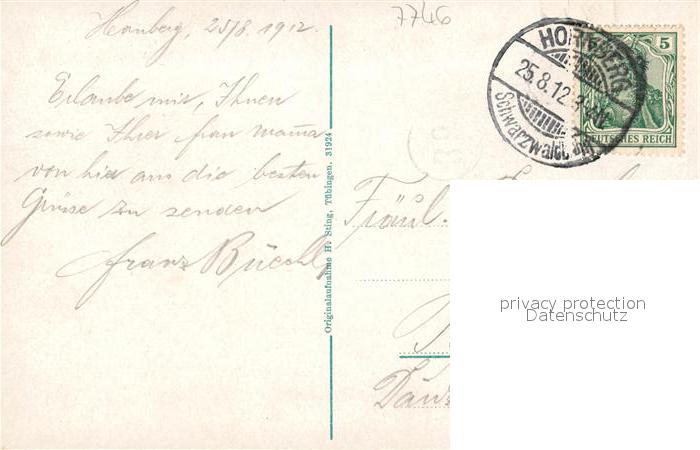 Hornberg, 25/8. 1912.
Erlaube mir, Ihnen
sowie Ihrer frau mama
von hier aus die besten
Grüsse zu senden
franz
Originalaufnahme H. Sting, Tübingen. 31924
7746
HORNBERG
25.8.12
Schwarzwaldbahn
5
DEUTSCHES REICH
Fräul.
privacy protection
Datenschutz